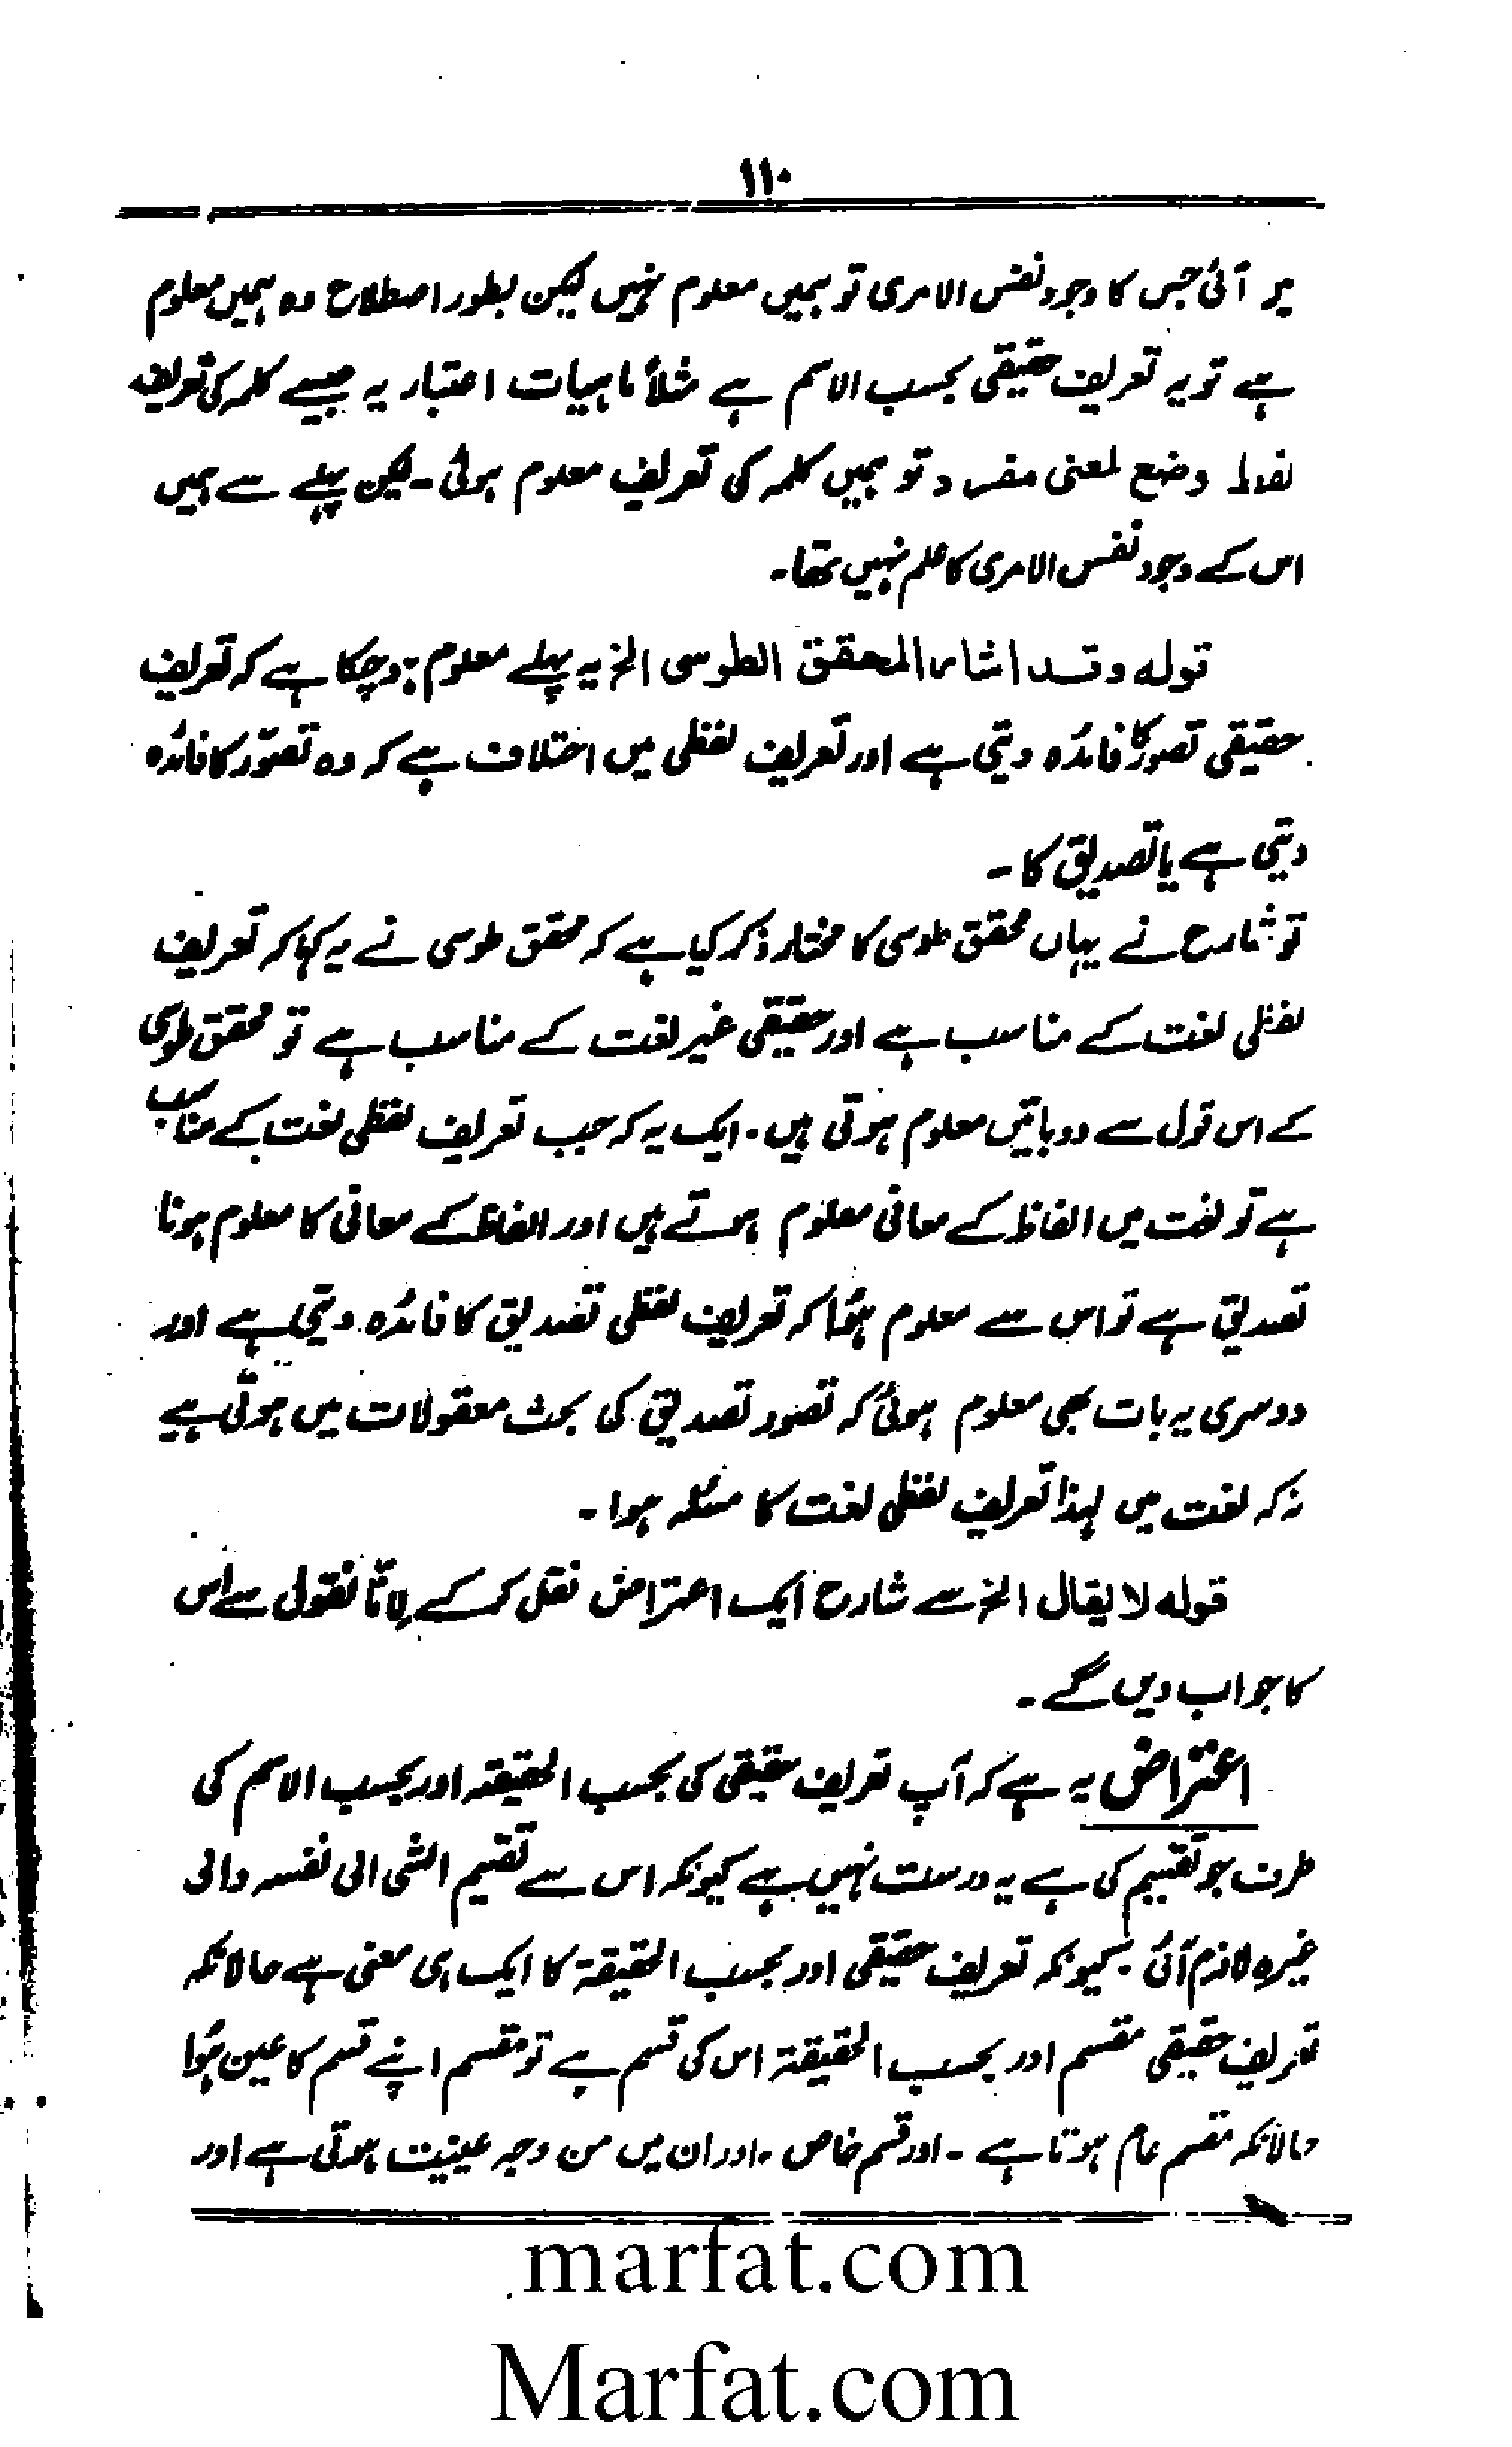 ۱۱۰
پر آئی جس کا وجود نفس الامری تو ہمیں معلوم نہیں لیکن بطور اصطلاح وہ ہمیں معلوم
ہے تو یہ تعریف حقیقی بحسب الاسم ہے مثلاً ماہیات اعتبار یہ جیسے کلمہ کی تعریف
لفظ وضع لمعنی مفرد تو ہمیں کلمہ کی تعریف معلوم ہوئی۔ لیکن پہلے سے ہمیں
اس کے وجود نفس الامری کا علم نہیں تھا۔
قولہ وقد اشار المحقق الطوسی الخ یہ پہلے معلوم ہوچکا ہے کہ تعریف
حقیقی تصور کا فائدہ دیتی ہے اور تعریف لفظی میں اختلاف ہے کہ وہ تصوّر کا فائدہ
دیتی ہے یا تصدیق کا۔
تو شارح نے یہاں محقق طوسی کا مختار ذکر کیا ہے کہ محقق طوسی نے یہ کہا کہ تعریف
لفظی لغت کے مناسب ہے اور حقیقی غیر لغت کے مناسب ہے تو محقق طوسی
کے اس قول سے دو باتیں معلوم ہوتی ہیں۔ ایک یہ کہ جب تعریف لفظی لغت کے مناسب
ہے تو لغت میں الفاظ کے معانی معلوم ہوتے ہیں اور الفاظ کے معانی کا معلوم ہونا
تصدیق ہے تو اس سے معلوم ہؤا کہ تعریف لفظی تصدیق کا فائدہ دیتی ہے اور
دوسری یہ بات بھی معلوم ہوئی کہ تصور تصدیق کی بحث معقولات میں ہوتی ہے
نہ کہ لغت میں لہذا تعریف لفظی لغت کا مسئلہ ہوا۔
قولہ لا یقال الخ سے شارح ایک اعتراض نقل کر کے لِاَنَّا نقول سے اس
کا جواب دیں گے۔
اعتراض یہ ہے کہ آپ تعریف حقیقی کی بحسب الحقیقۃ اور بحسب الاسم کی
طرف جو تقسیم کی ہے یہ درست نہیں ہے کیونکہ اس سے تقسیم الشی الی نفسہ والی
غیرہ لازم آئی۔ کیونکہ تعریف حقیقی اور بحسب الحقیقۃ کا ایک ہی معنی ہے حالانکہ
تعریف حقیقی مقسم اور بحسب الحقیقۃ اس کی قسم ہے تو مقسم اپنے قسم کا عین ہؤا
حالانکہ مقسم عام ہوتا ہے۔ اور قسم خاص۔ اور ان میں من وجہ عینیت ہوتی ہے اور
marfat.com
Marfat.com